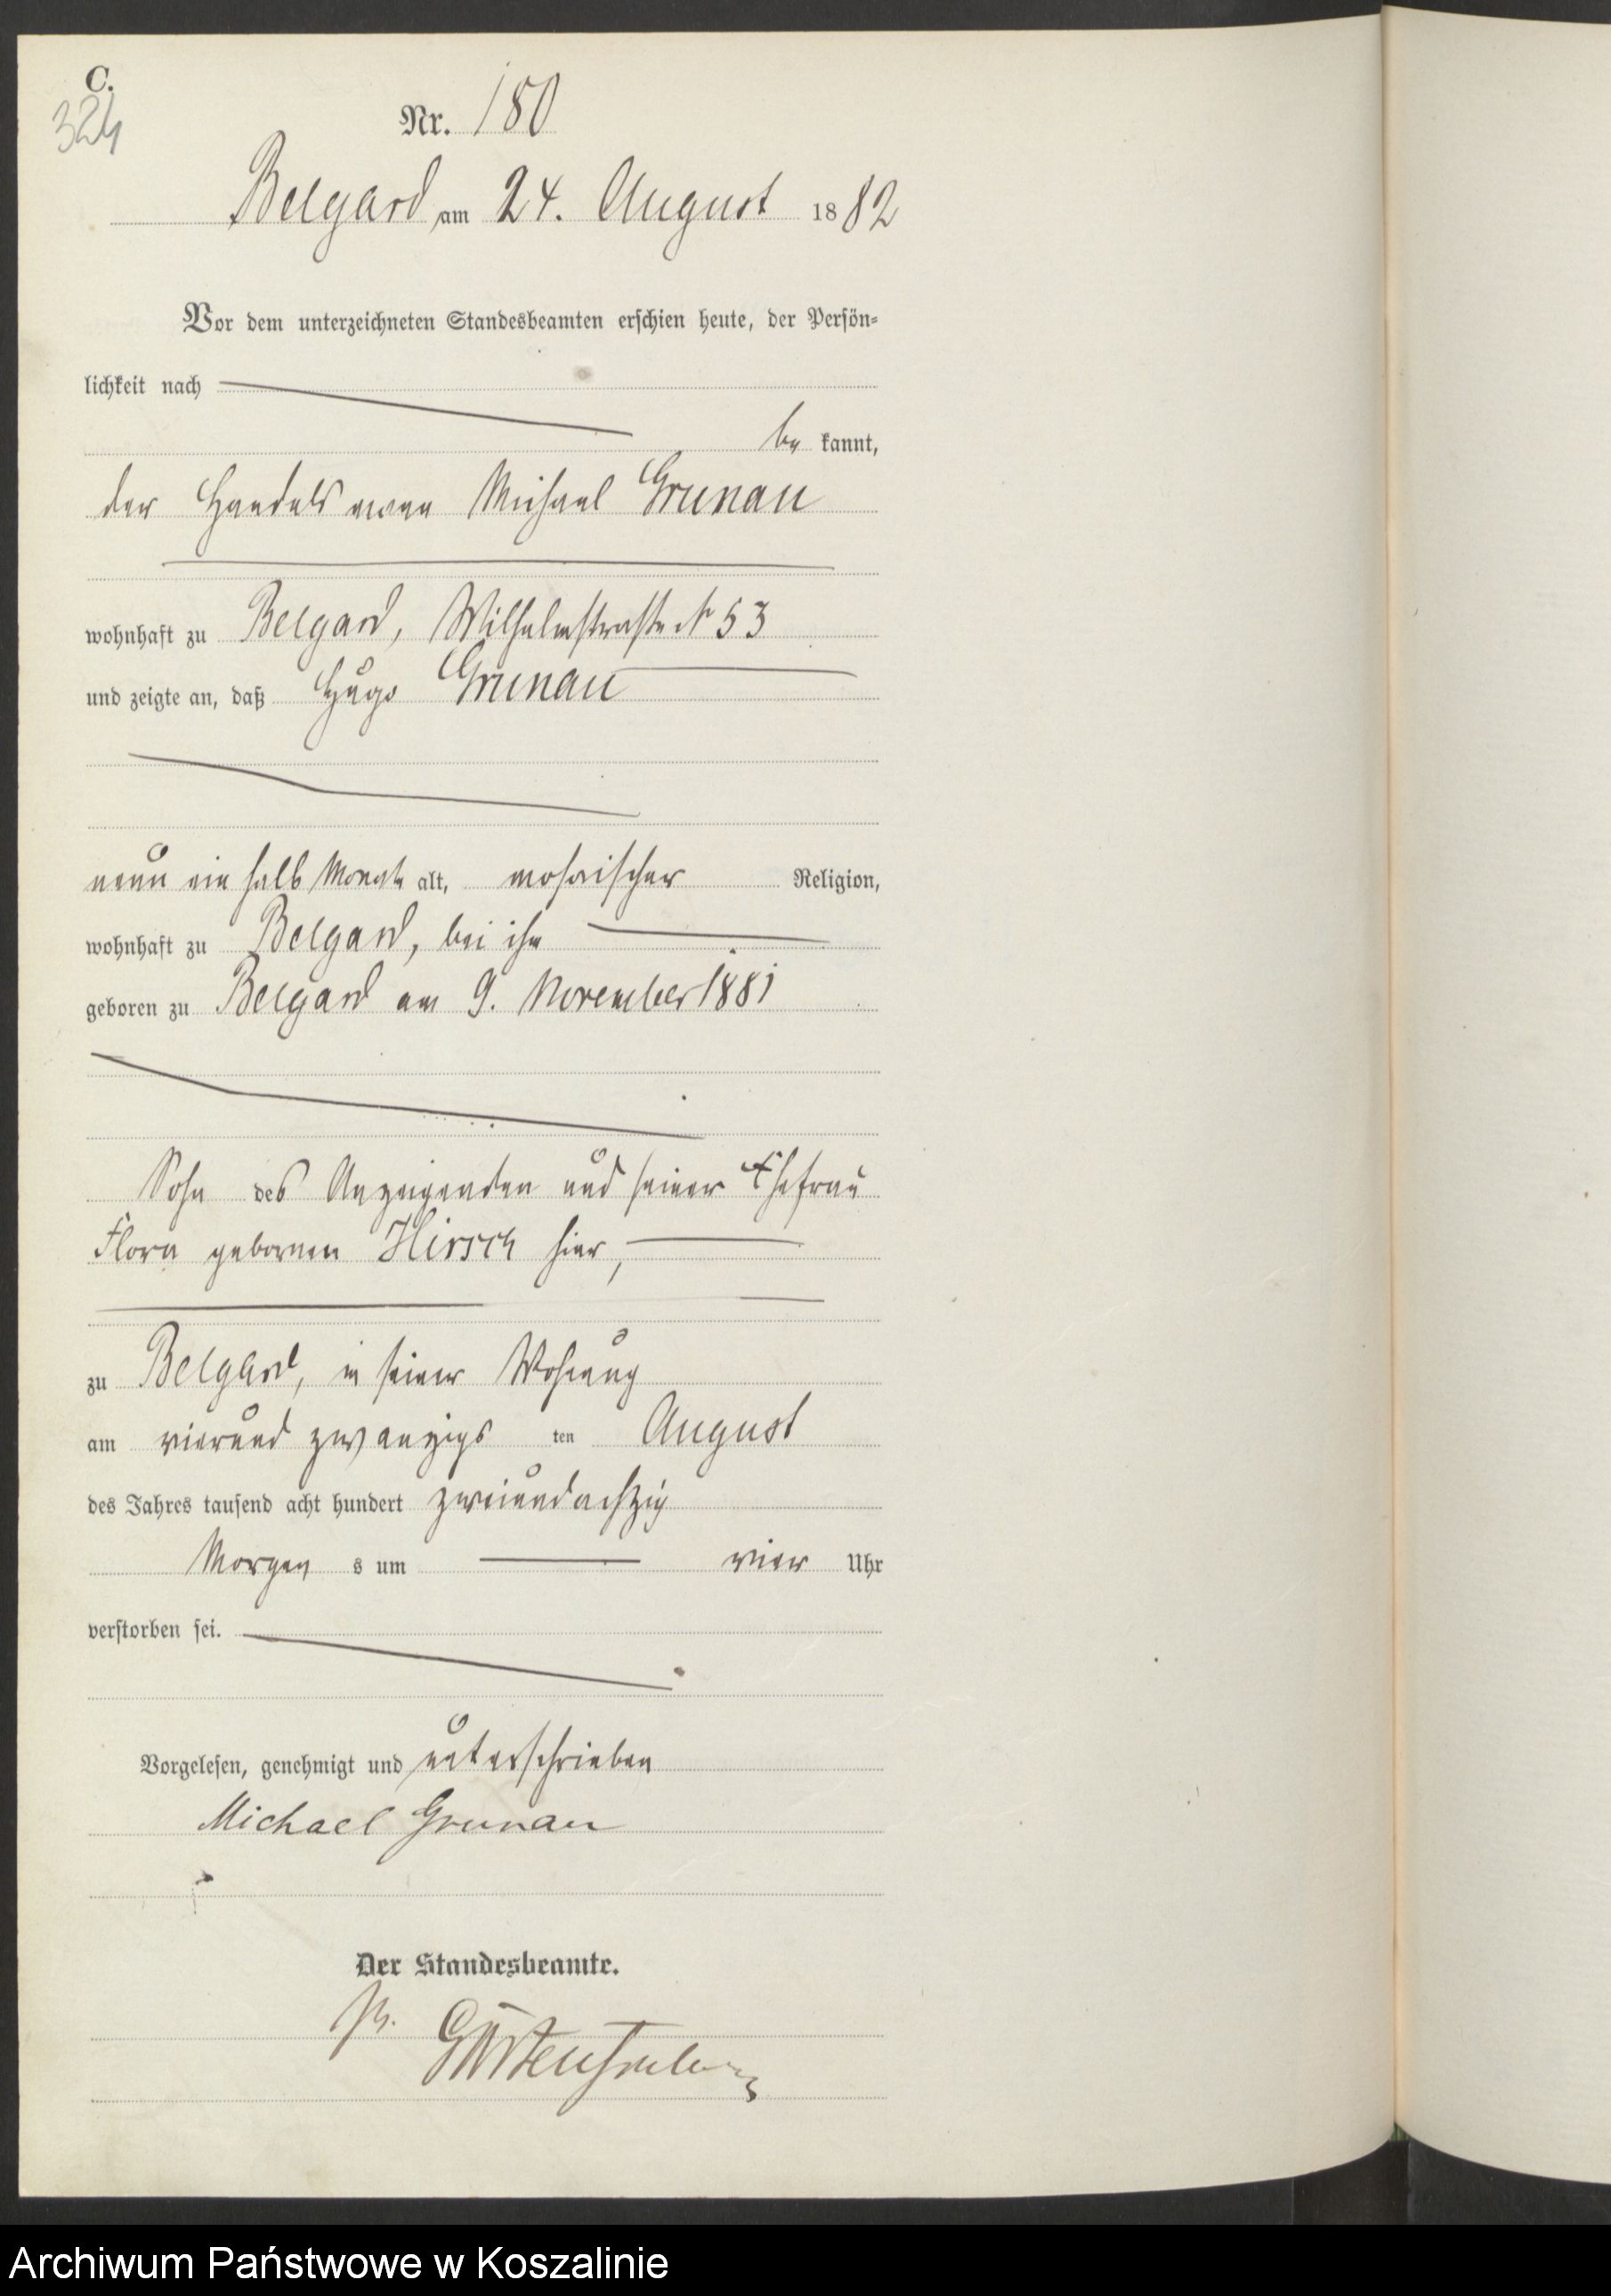 C.
324
Nr. 180
Belgard am 24. August 1882
Vor dem unterzeichneten Standesbeamten erschien heute, der Persön-
lichkeit nach
be kannt,
der Handelsmann Michael Grunau
wohnhaft zu Belgard, Wilhelmstraße No 53
und zeigte an, daß Hugo Grunau
neun ein halb Monate alt, mosaischer Religion,
wohnhaft zu Belgard, bei ihm
geboren zu Belgard am 9. November 1881
Sohn des Anzeigenden und seiner Ehefrau
Flora gebornen Hirsch hier,
zu Belgard, in seiner Wohnung
am vierund zwanzigs ten August
des Jahres tausend acht hundert zweiundachtzig
Morgen s um vier Uhr
verstorben sei.
Vorgelesen, genehmigt und unterschrieben
Michael Grunau
Der Standesbeamte.
Archiwum Państwowe w Koszalinie